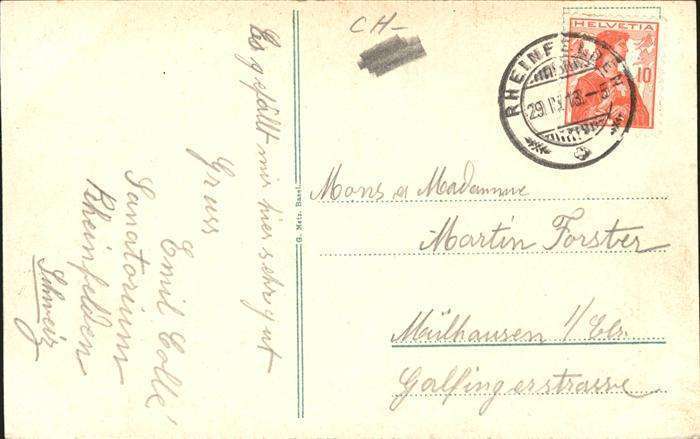 CH-
HELVETIA
10
RHEINFELDEN
29. –5
Es gefällt mir hier sehr gut
Gruss
Emil Collé
Sanatorium
Rheinfelden
Schweiz
G. Metz, Basel.
Mons et Madamme
Martin Forster
Mülhausen i/Els.
Galfingerstrasse